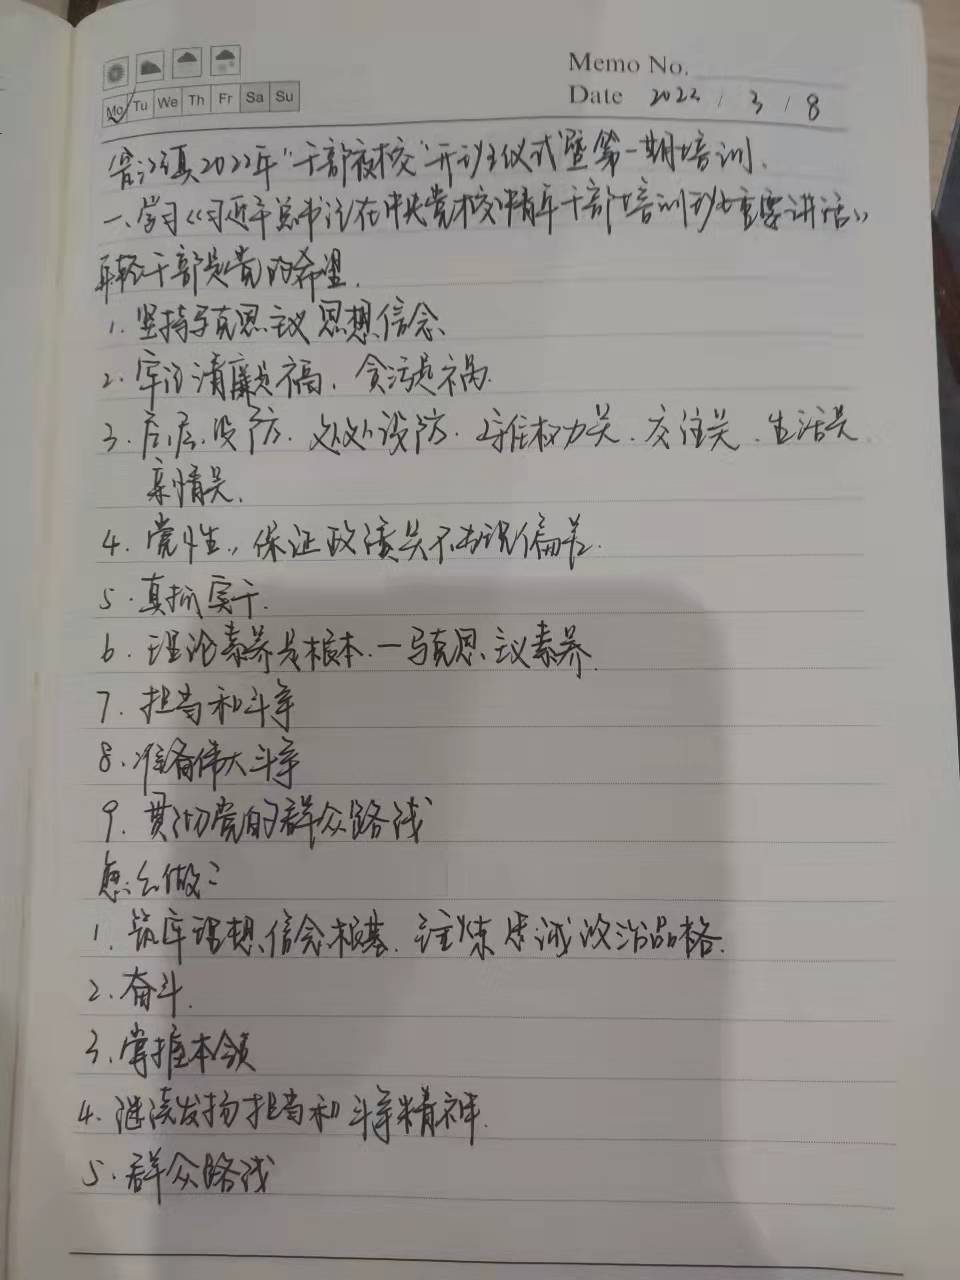 Memo No.
Mo Tu We Th Fr Sa Su
Date 2022 / 3 / 8
2022年“干部夜校”开班仪式暨第一期培训.
一、学习《习近平总书记在中央党校中青年干部培训班重要讲话》
年轻干部是党的希望.
1. 坚持马克思主义思想信念、
2. 牢记清廉是福、贪污是祸.
3. 层层设防. 处处设防. 守住权力关、交往关、生活关
亲情关.
4. 党性,, 保证政绩关不出现偏差.
5. 真抓实干.
6. 理论素养是根本. 一马克思主义素养.
7. 担当和斗争
8. 准备伟大斗争
9. 贯彻党的群众路线
怎么做?
1. 筑牢理想、信念根基. 忠诚政治品格.
2. 奋斗.
3. 掌握本领
4. 继续发扬担当和斗争精神.
5. 群众路线